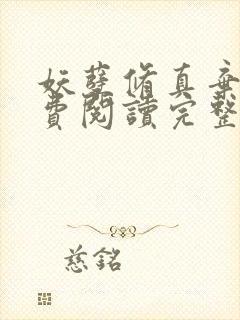 妖孽脩真棄
費閱讀完整
慈銘